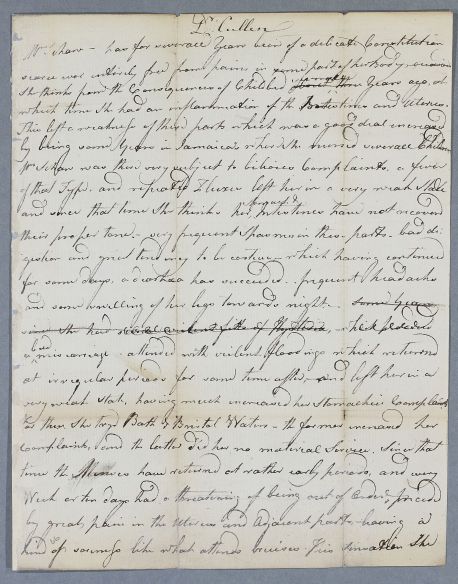 Dr. Cullen
Mrs. Shaw - has for several Years been of a delicate Constitution
scarce ever entirely free from pains in some part of her Body, occasion
She thinks from the Consequences of Childbed Years ago, at
which time She had an inflammation of the and Uterus.
This left a weakness of these parts which was a good deal increased
by being some Years in Jamaica where She nursed several Children
Mrs Shaw was there very subject to bilious Complaints, a fever
of that Type. and repeated Fluxes left her in a very weak State
and since that time She thinks her Intestines have not recovered
their proper tone. - very frequent Spasms in these parts - bad di-
gestion and great tendency to be costive - which having continued
for some days, a diarrhœa has succeeded. frequent headachs
and some swelling of her legs towards night - Some Years
since She had several violent fitts of Hysterics, which preceded
a bad miscarriage - attended with violent floodings which returned
at irregular periods for some time after, and left her in a
very weak State, having much increased her Stomachic Complaints
for them She tryd Bath & Bristol Waters - the former increased her
Complaints, and the latter did her no material Service. Since that
time the Menses have returned at rather early periods, and every
Week or ten days had a threatening of being out of Order, preceded
by great pain in the Uterus and Adjacent parts - leaving a
kind of soreness like what attends bruises. This situation She